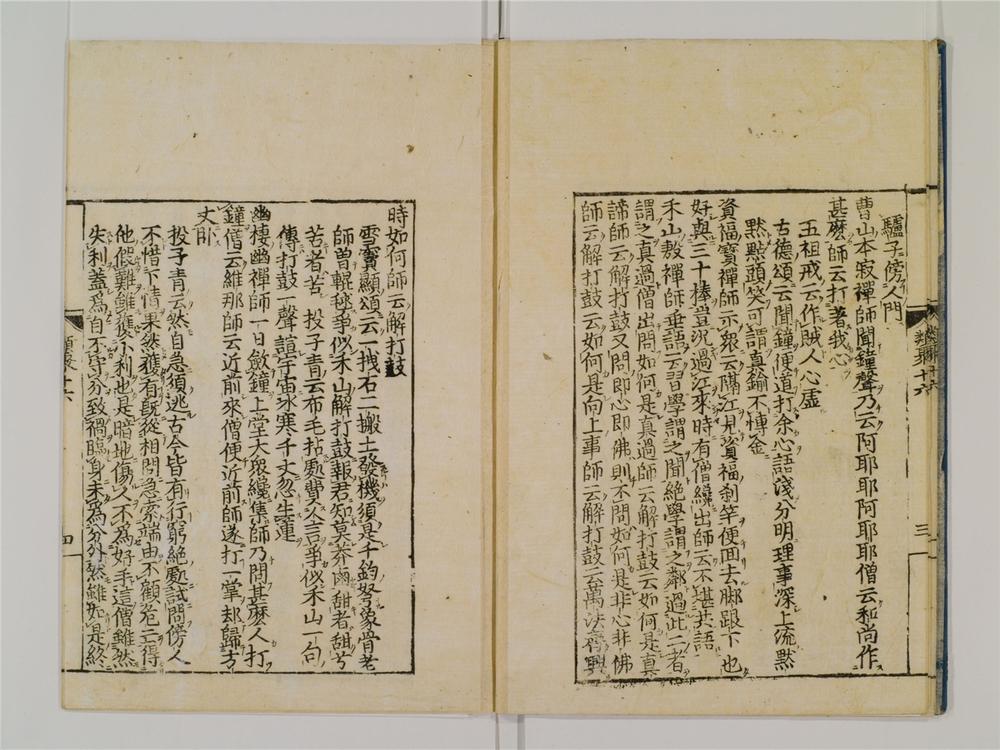 驢子傍人門
曹山本寂禪師聞鐘聲乃云阿耶耶阿耶耶僧云和尚作
甚麽師云打著我心
五祖戒云作賊人心虛
古德頌云聞鐘便道打余心語淺分明理事深上流默
默點頭笑可謂真鍮不博金
資福寶禪師示衆云隔江見資福刹竿便囬去脚跟下也
好與三十棒豈況過江來時有僧纔出師云不堪共語
禾山敎禪師垂語云習學謂之聞絶學謂之鄰過此二者
謂之真過僧出問如何是真過師云解打鼓云如何是真
諦師云解打鼓又問即心即佛則不問如何是非心非佛
師云解打鼓云如何是向上事師云解打鼓云萬法齊興
類聚十六
三
時如何師云解打鼓
雪竇顯頌云一拽石二搬土發機須是千鈞弩象骨老
師曽輥毬爭似禾山解打鼓報君知莫莽鹵甜者甜兮
苦者苦 投子青云布毛拈處費人言爭似禾山一句
傳打鼓一聲誼宇宙冰寒千丈忽生蓮
幽棲幽禪師一日斂鐘上堂大衆纔集師乃問甚麽人打
鐘僧云維那師云近前來僧便近前師遂打一掌却歸方
丈卧
投子青云然自急須逃古今皆有行窮絶處試問傍人
不惜下情果然獲有旣從相問急索端由不顧危亡得
他假雞雖獲小利也是暗地傷人不爲好手這僧雖然
失利蓋爲自不守分致禍臨身未爲分外然雖如是終
類聚十六
四